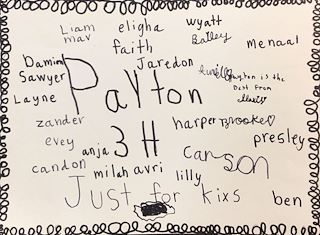 Liam
mav
eligha
faith
wyatt
Bailey
menaal
Damin
Sawyer
Layne
Jaredon
Payton
is the
best from
zander
evey
anja
3H
harper
Brooke
presley
candon
milah
avri
lilly
carson
Just for kixs
ben